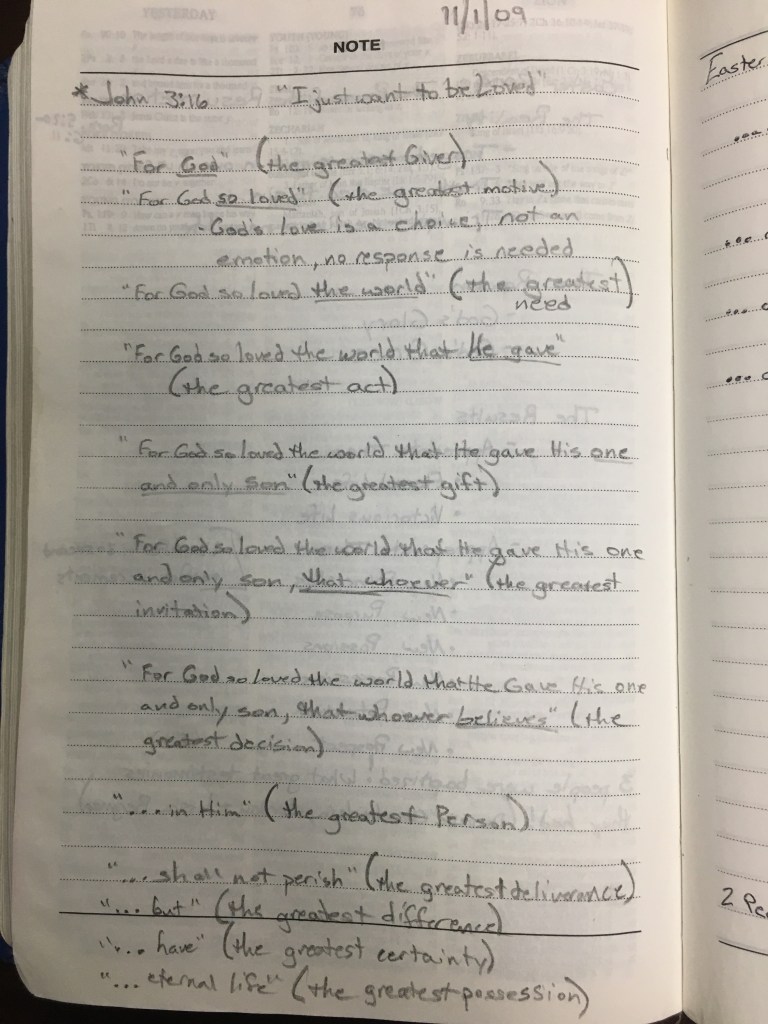 11/1/09
NOTE
* John 3:16 "I just want to be Loved"
"For God" (the greatest Giver)
"For God so loved" (the greatest motive)
- God's love is a choice, not an
emotion, no response is needed
"For God so loved the world" (the greatest)
need
"For God so loved the world that He gave"
(the greatest act)
"For God so loved the world that He gave His one
and only son" (the greatest gift)
"For God so loved the world that He gave His one
and only son, that whoever" (the greatest
invitation)
"For God so loved the world that He Gave His one
and only son, that whoever believes" (the
greatest decision)
"...in Him" (the greatest Person)
"... shall not perish" (the greatest deliverance)
"... but" (the greatest difference)
"... have" (the greatest certainty)
"... eternal life" (the greatest possession)
Easter
2 Pe